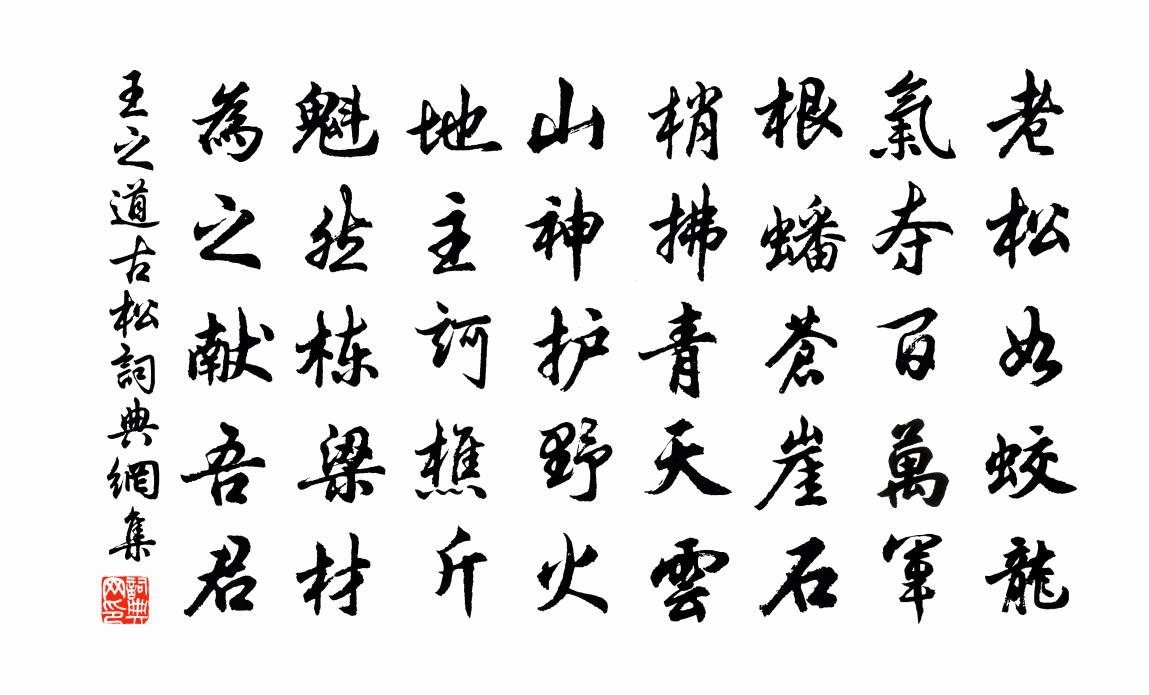 老松如蛟龍
氣夺百萬軍
根蟠蒼崖石
梢拂青天雲
山神护野火
地主訶樵斤
魁然栋梁材
為之献吾君
王之道古松詞典網集
詞典网印